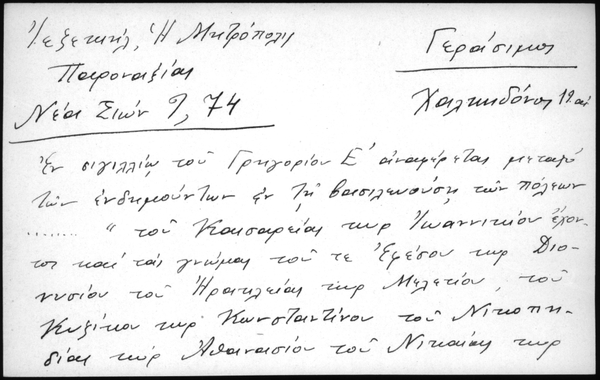 Ἰεζεκιήλ, Ἡ Μητρόπολις
Παροναξίας
Νέα Σιών 9, 74
Γεράσιμος
Χαλκηδόνος 19 αἰ.
Ἐν σιγιλλίῳ τοῦ Γρηγορίου Ε' ἀναφέρεται μεταξύ
τῶν ἐνδημούντων ἐν τῇ βασιλευούσῃ τῶν πόλεων
........ " τοῦ Καισαρείας κυρ Ἰωαννικίου ἔχον-
τος καί τάς γνώμας τοῦ τε Ἐφέσου κυρ Διο-
νυσίου τοῦ Ἡρακλείας κυρ Μελετίου, τοῦ
Κυζίκου κυρ Κωνσταντίνου τοῦ Νικομη-
δίας κυρ Ἀθανασίου τοῦ Νικαίας κυρ